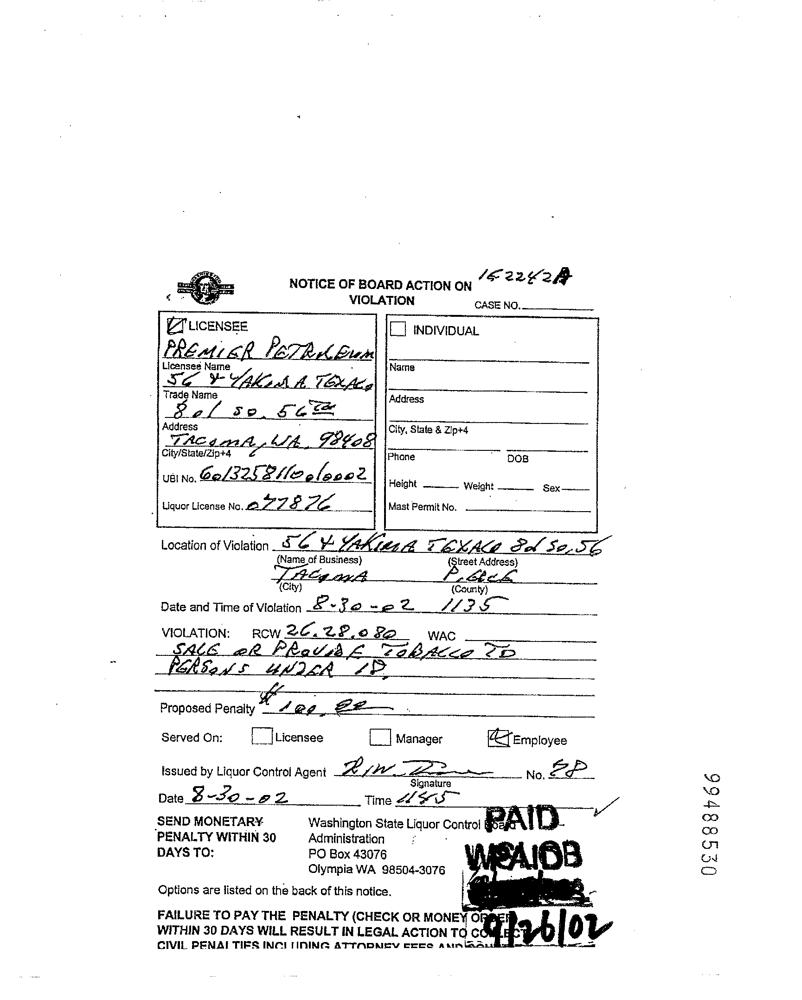 NOTICE OF BOARD ACTION ON
VIOLATION
CASE NO.
LICENSEE
PREMIER PETROLEUM
Licensee Name
56 & YAKIMA TEXACO
Trade Name
801 SO. 56TH
Address
TACOMA, WA 98408
City/State/Zip+4
UBI No. 6013258110010002
Liquor License No. 077876
INDIVIDUAL
Name
Address
City, State & Zip+4
Phone DOB
Height Weight Sex
Mast Permit No.
Location of Violation 56 & YAKIMA TEXACO 801 SO. 56
(Name of Business) (Street Address)
TACOMA PIERCE
(City) (County)
Date and Time of Violation 8-30-02 1135
VIOLATION: RCW 26.28.080 WAC
SALE OR PROVIDE TOBACCO TO
PERSONS UNDER 18.
Proposed Penalty $ 100.00
Served On: Licensee Manager Employee
Issued by Liquor Control Agent No. 28
Signature
Date 8-30-02 Time 1145
SEND MONETARY
PENALTY WITHIN 30
DAYS TO:
Washington State Liquor Control Board
Administration
PO Box 43076
Olympia WA 98504-3076
PAID
9/26/02
Options are listed on the back of this notice.
FAILURE TO PAY THE PENALTY (CHECK OR MONEY ORDER)
WITHIN 30 DAYS WILL RESULT IN LEGAL ACTION TO COLLECT
CIVIL PENALTIES INCLUDING ATTORNEY FEES AND
99488530